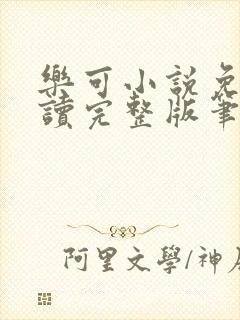 樂可小說免
讀完整版筆
阿里文學/神